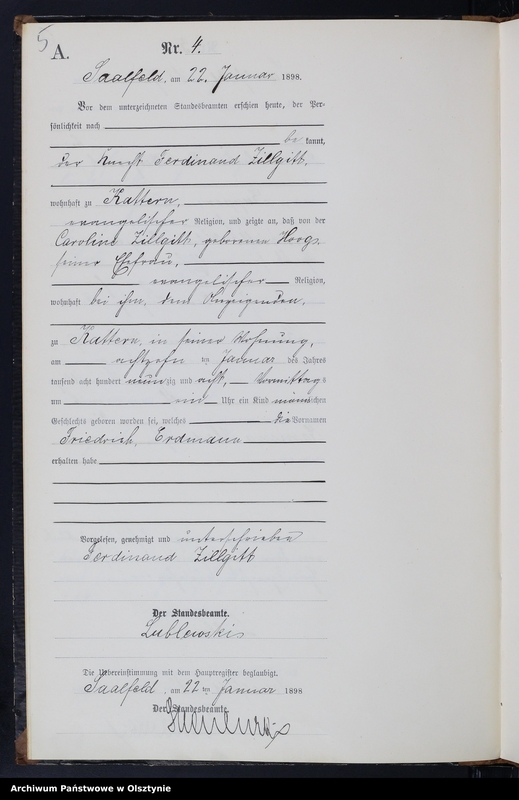 5
A.
Nr. 4.
Saalfeld, am 22. Januar 1898.
Vor dem unterzeichneten Standesbeamten erschien heute, der Per-
sönlichkeit nach
be kannt,
der Knecht Ferdinand Zillgitt,
wohnhaft zu Kattern,
evangelischer Religion, und zeigte an, daß von der
Caroline Zillgitt, geborenen Hoog,
seiner Ehefrau,
evangelischer Religion,
wohnhaft bei ihm, dem Anzeigenden,
zu Kattern, in seiner Wohnung,
am achtzehn ten Januar des Jahres
tausend acht hundert neunzig und acht, Vormittags
um ein Uhr ein Kind männlichen
Geschlechts geboren worden sei, welches die Vornamen
Friedrich, Erdmann
erhalten habe
Vorgelesen, genehmigt und unterschrieben
Ferdinand Zillgitt
Der Standesbeamte.
Lublewskis
Die Uebereinstimmung mit dem Hauptregister beglaubigt.
Saalfeld, am 22 ten Januar 1898
Der Standesbeamte.
Archiwum Państwowe w Olsztynie